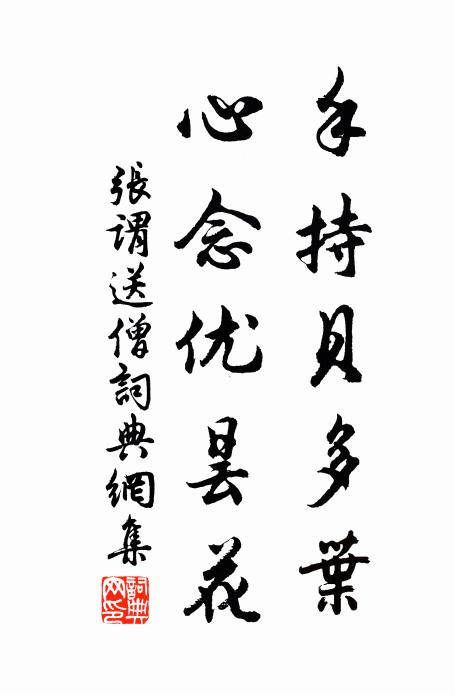 手持貝多葉
心念优曇花
張谓送僧詞典網集
詞典网印